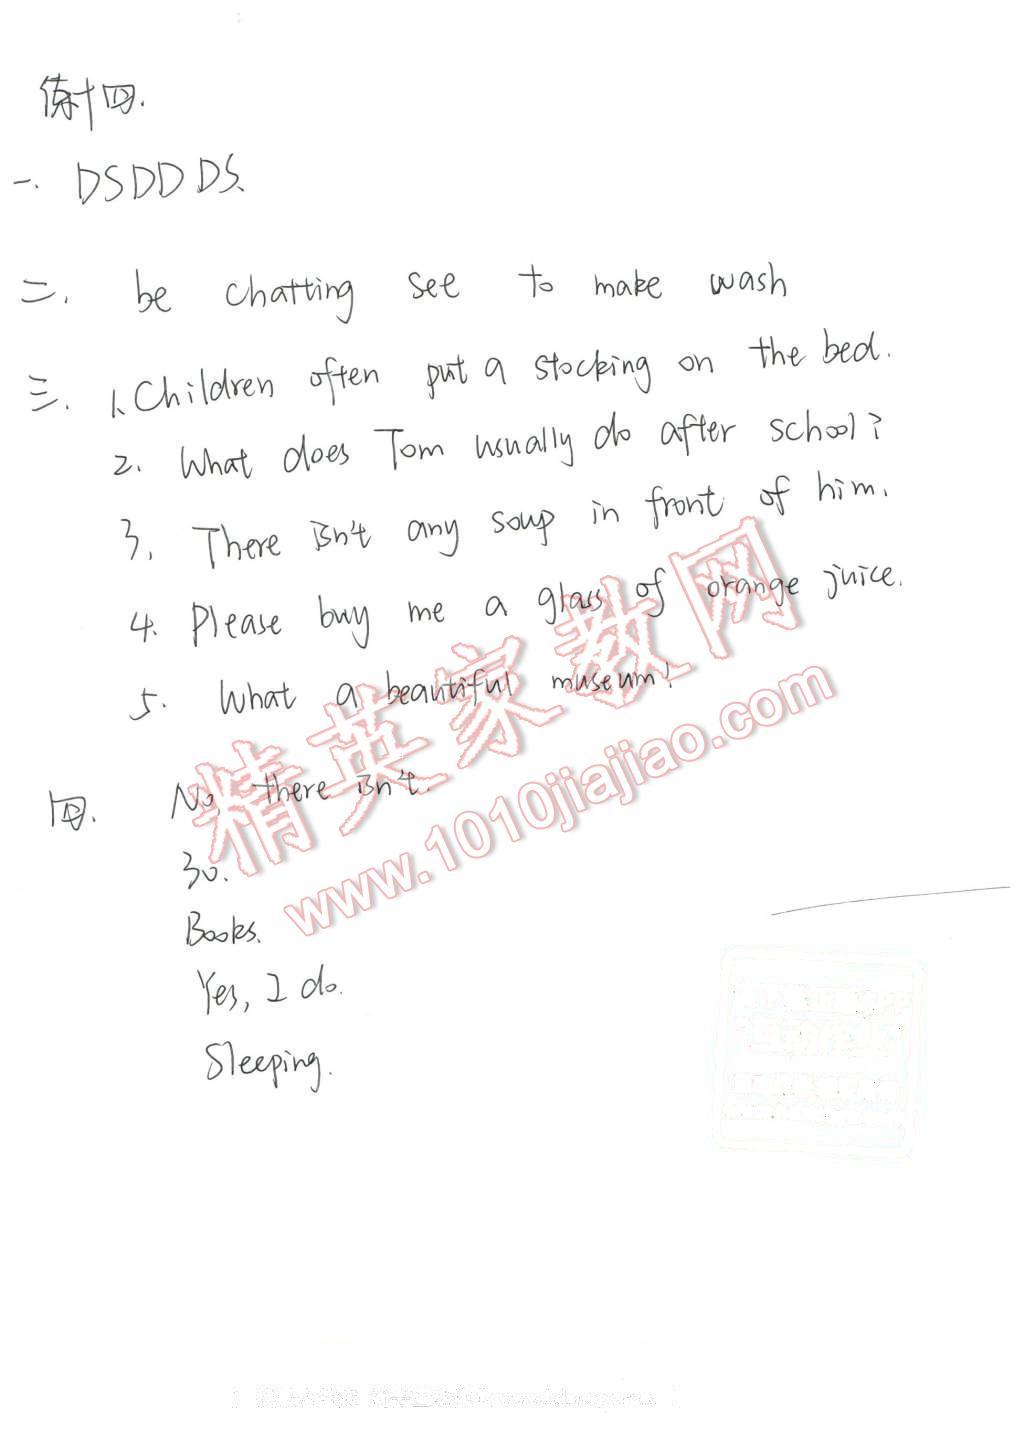 练十四.
一. DSDDDS.
二. be chatting see to make wash
三. 1. Children often put a stocking on the bed.
2. What does Tom usually do after school?
3. There isn't any soup in front of him.
4. Please buy me a glass of orange juice.
5. What a beautiful museum!
四. No, there isn't.
30.
Books.
Yes, I do.
Sleeping.
精英家教网
www.1010jiajiao.com